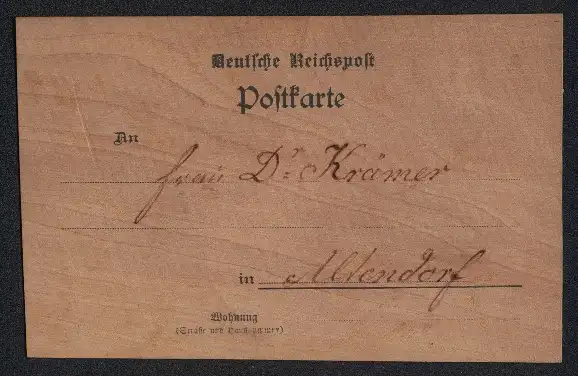 Deutsche Reichspost
Postkarte
An
Frau Dr Krämer
in Altendorf
Wohnung
(Straße und Hausnummer)